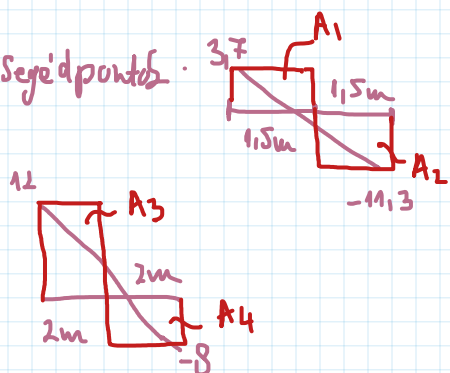 Segédpontos
3,7
A1
1,5m
1,5m
A2
-11,3
12
A3
2m
2m
A4
-8